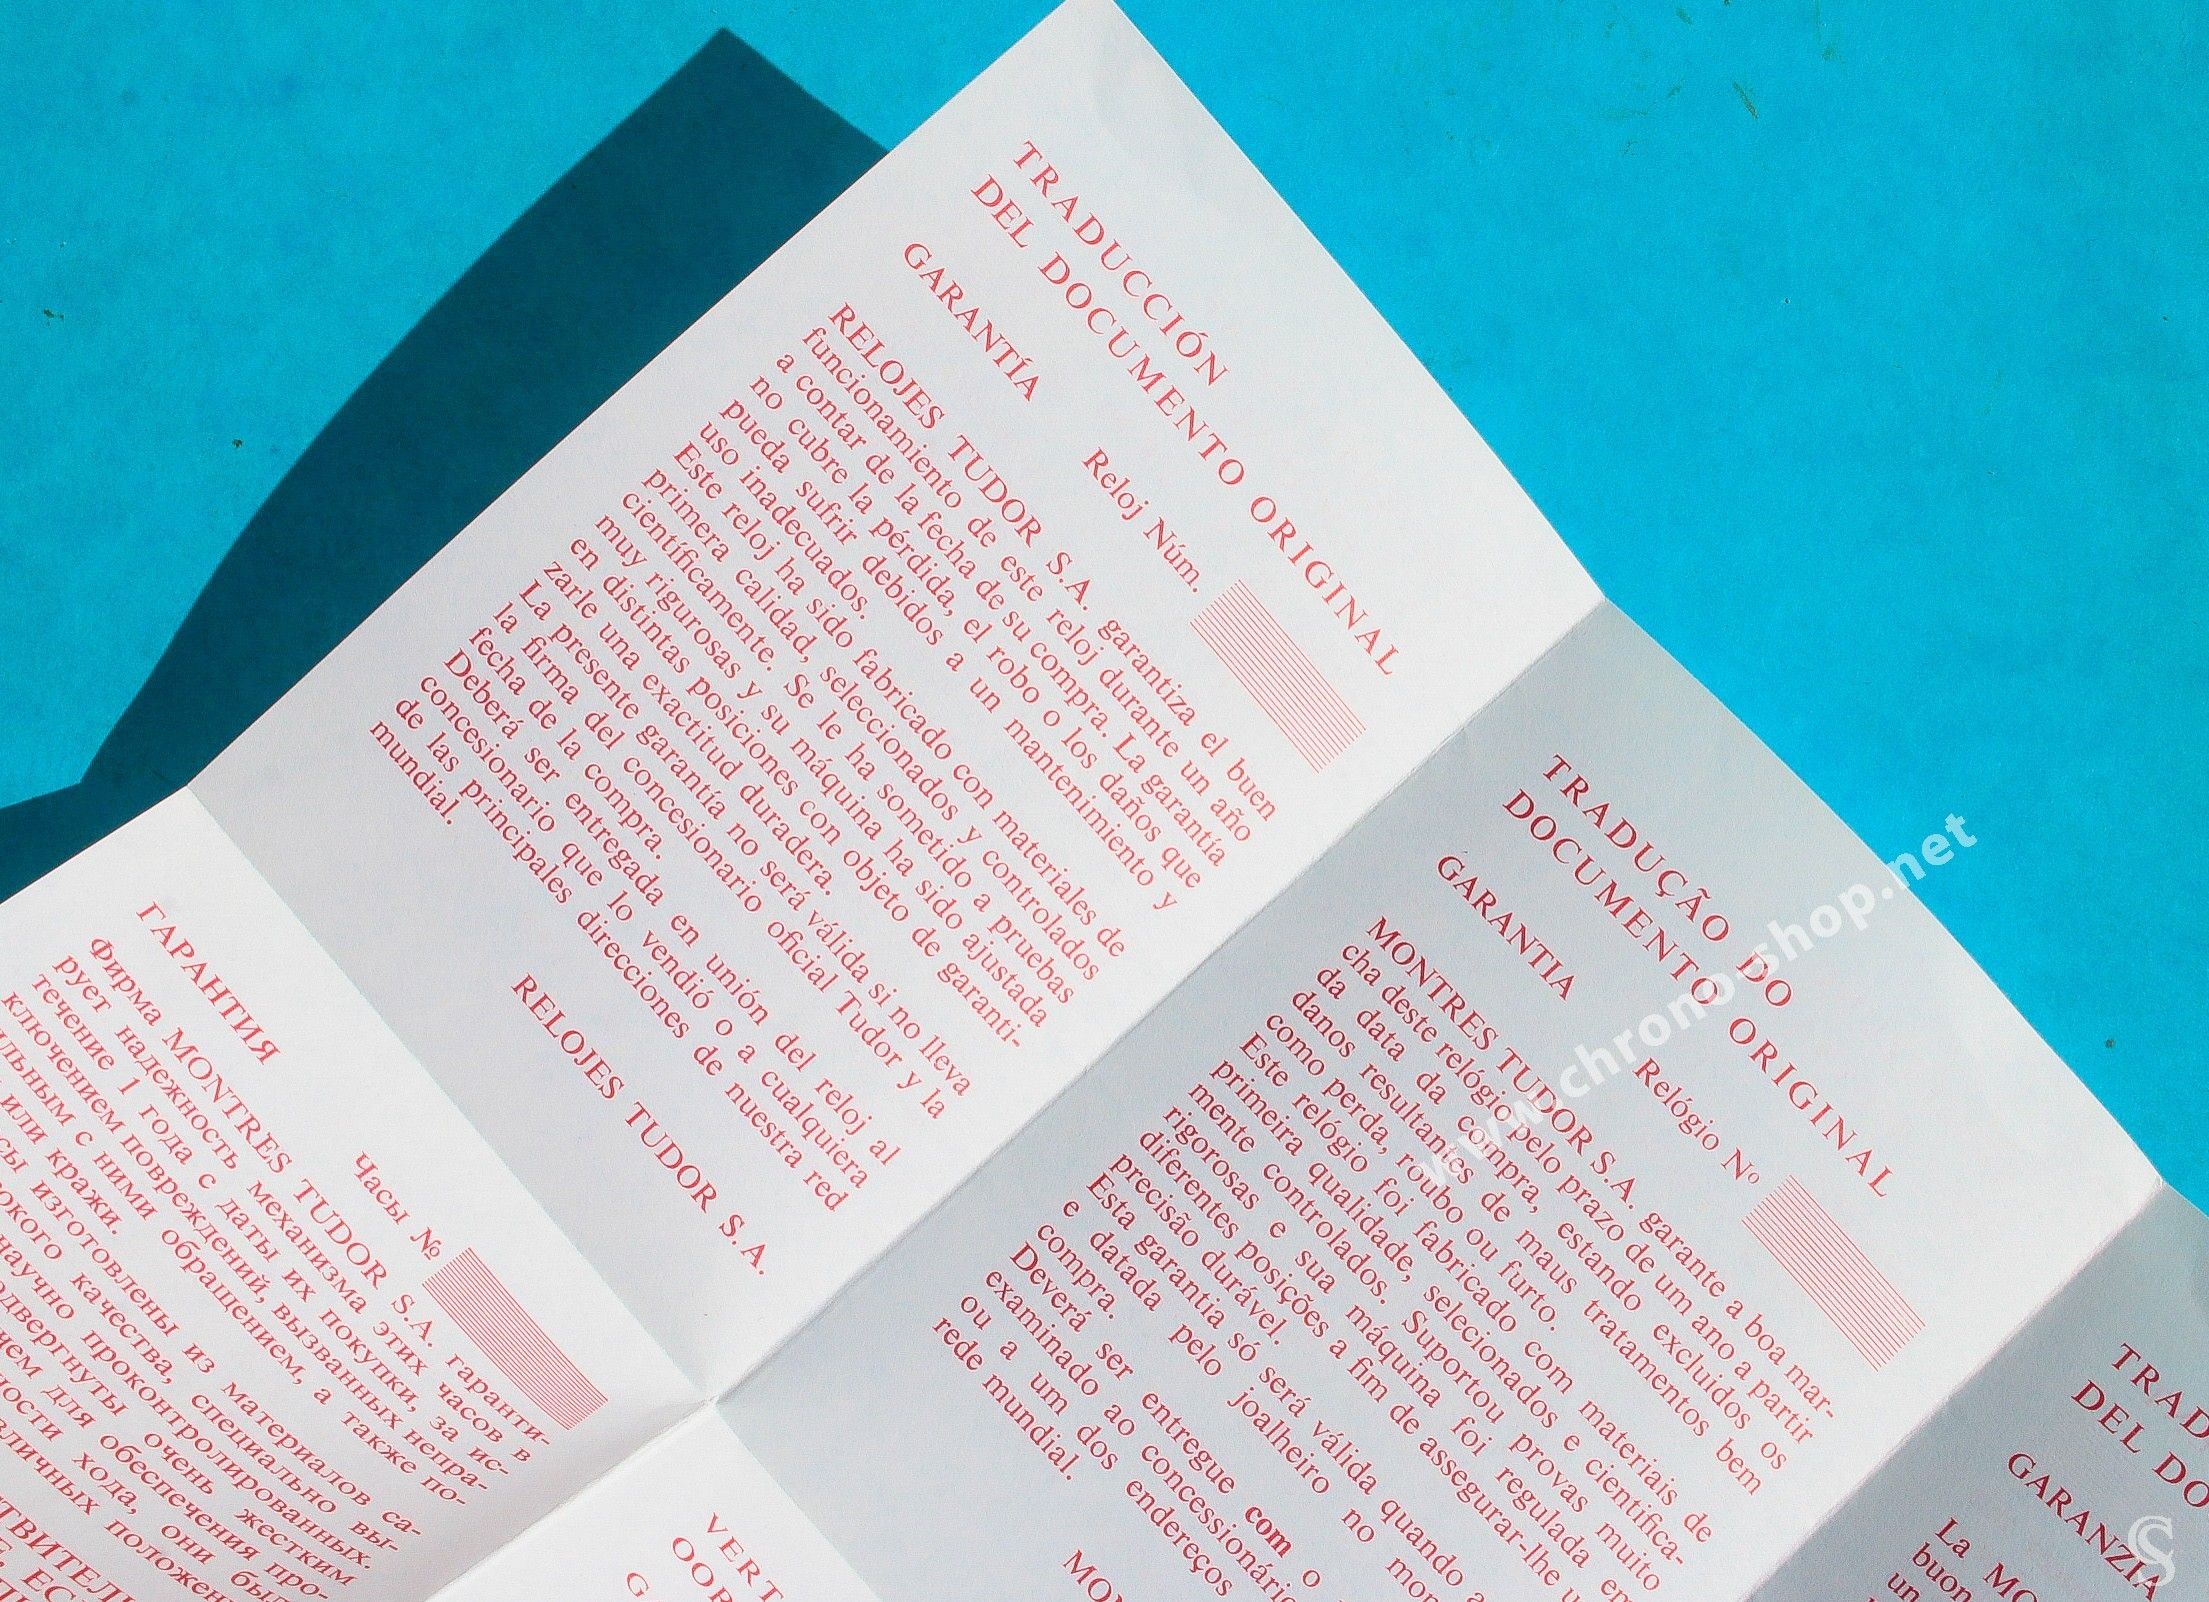 TRADUCCIÓN
DEL DOCUMENTO ORIGINAL
GARANTÍA
Reloj Núm.
RELOJES TUDOR S.A. garantiza el buen
funcionamiento de este reloj durante un año
a contar de la fecha de su compra. La garantía
no cubre la pérdida, el robo o los daños que
pueda sufrir debidos a un mantenimiento y
uso inadecuados.
Este reloj ha sido fabricado con materiales de
primera calidad, seleccionados y controlados
científicamente. Se le ha sometido a pruebas
muy rigurosas y su máquina ha sido ajustada
en distintas posiciones con objeto de garanti-
zarle una exactitud duradera.
La presente garantía no será válida si no lleva
la firma del concesionario oficial Tudor y la
fecha de la compra.
Deberá ser entregada en unión del reloj al
concesionario que lo vendió o a cualquiera
de las principales direcciones de nuestra red
mundial.
RELOJES TUDOR S.A.
TRADUÇÃO DO
DOCUMENTO ORIGINAL
GARANTIA
Relógio Nº
MONTRES TUDOR S.A. garante a boa mar-
cha deste relógio pelo prazo de um ano a partir
da data da compra, estando excluidos os
danos resultantes de maus tratamentos bem
como perda, roubo ou furto.
Este relógio foi fabricado com materiais de
primeira qualidade, selecionados e cientifica-
mente controlados. Suportou provas muito
rigorosas e sua máquina foi regulada em
diferentes posições a fim de assegurar-lhe
precisão durável.
Esta garantia só será válida quando
e datada pelo joalheiro no
compra.
Deverá ser entregue com o
examinado ao
ou a um dos endereços
rede mundial.
ГАРАНТИЯ
Часы №
Фирма MONTRES TUDOR S.A. гаранти-
рует надежность механизма этих часов в
течение 1 года с даты их покупки, за ис-
ключением повреждений, вызванных непра-
вильным с ними обращением, а также по-
или кражи.
изготовлены из материалов са-
качества, специально вы-
научно проконтролированных.
очень жестким
для обеспечения про-
хода, они
положен
VERT
OOR
G
TRAD
DEL DO
GARANZIA
La MO
buon
un
www.chrono-shop.net